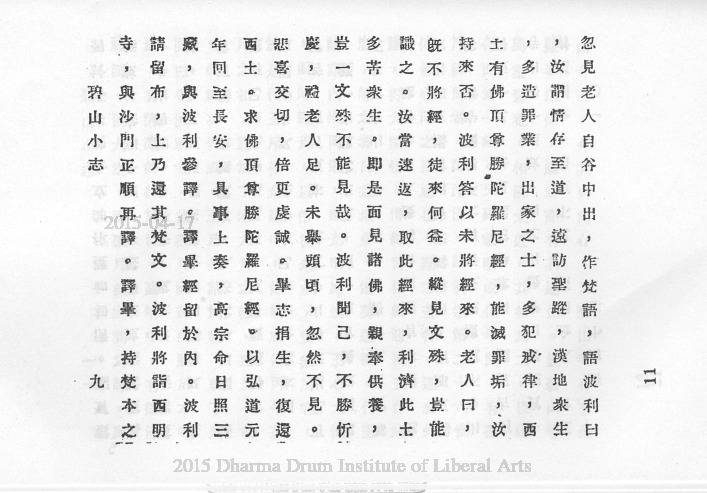 忽見老人自谷中出，作梵語，語波利曰
，汝謂情存至道，遠訪聖蹤，漢地衆生
，多造罪業，出家之士，多犯戒律，西
土有佛頂尊勝陀羅尼經，能滅罪垢，汝
持來否。波利答以未將經來。老人曰，
旣不將經，徒來何益。縱見文殊，豈能
識之。汝當速返，取此經來，利濟此土
多苦衆生。即是面見諸佛，親奉供養，
豈一文殊不能見哉。波利聞已，不勝忻
慶，禮老人足。未舉頭頃，忽然不見。
悲喜交切，倍更虔誠。畢志捐生，復還
西土。求佛頂尊勝陀羅尼經。以弘道元
年回至長安，具事上奏，高宗命日照三
藏，與波利參譯。譯畢經留於內。波利
請留布，上乃還其梵文。波利將詣西明
寺，與沙門正順再譯。譯畢，持梵本之
碧山小志
九
11
2015-04-17
2015 Dharma Drum Institute of Liberal Arts